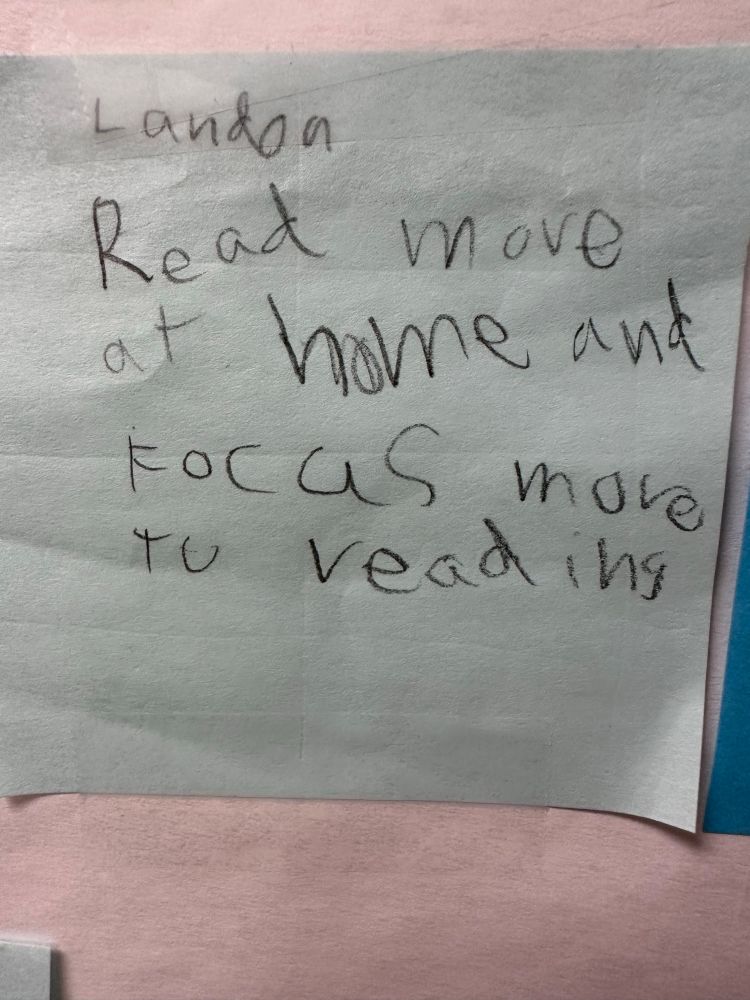 Landon
Read more
at home and
Focus more
to reading